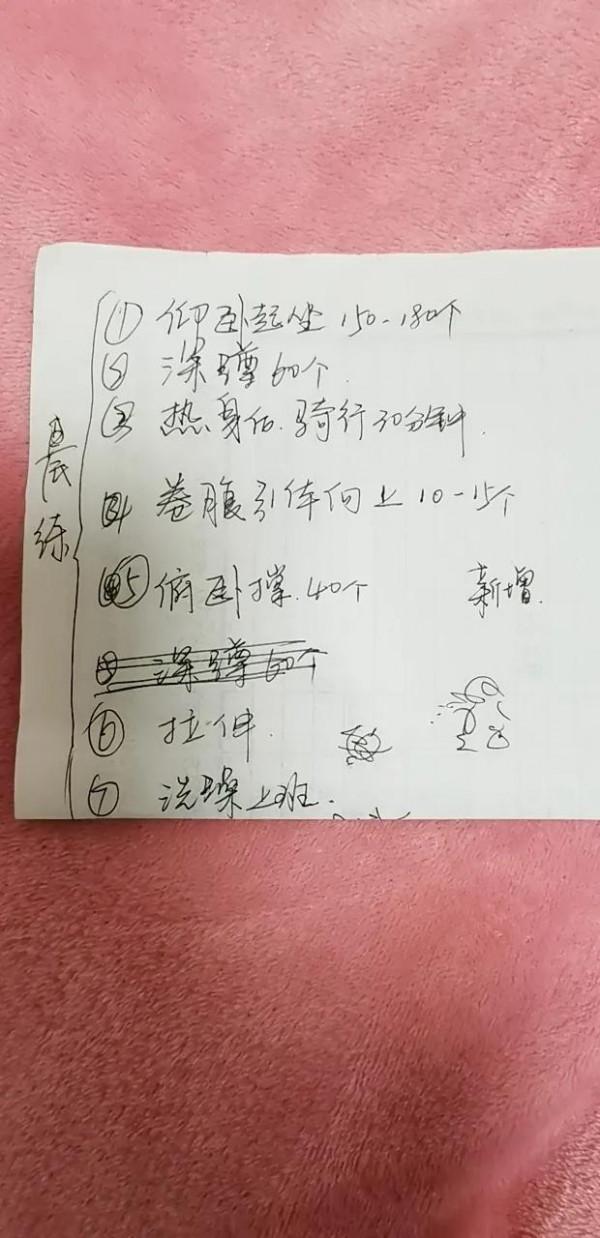 晨练
① 仰卧起坐 150-180个
② 深蹲 60个.
③ 热身后.骑行30分钟.
4 卷腹引体向上 10-15个
⑤ 俯卧撑.40个 新增.
深蹲60个
⑥ 拉伸.
⑦ 洗澡上班.